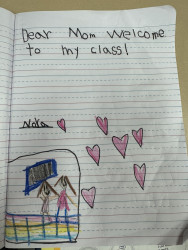 Dear Mom welcome
to my class!
Nora